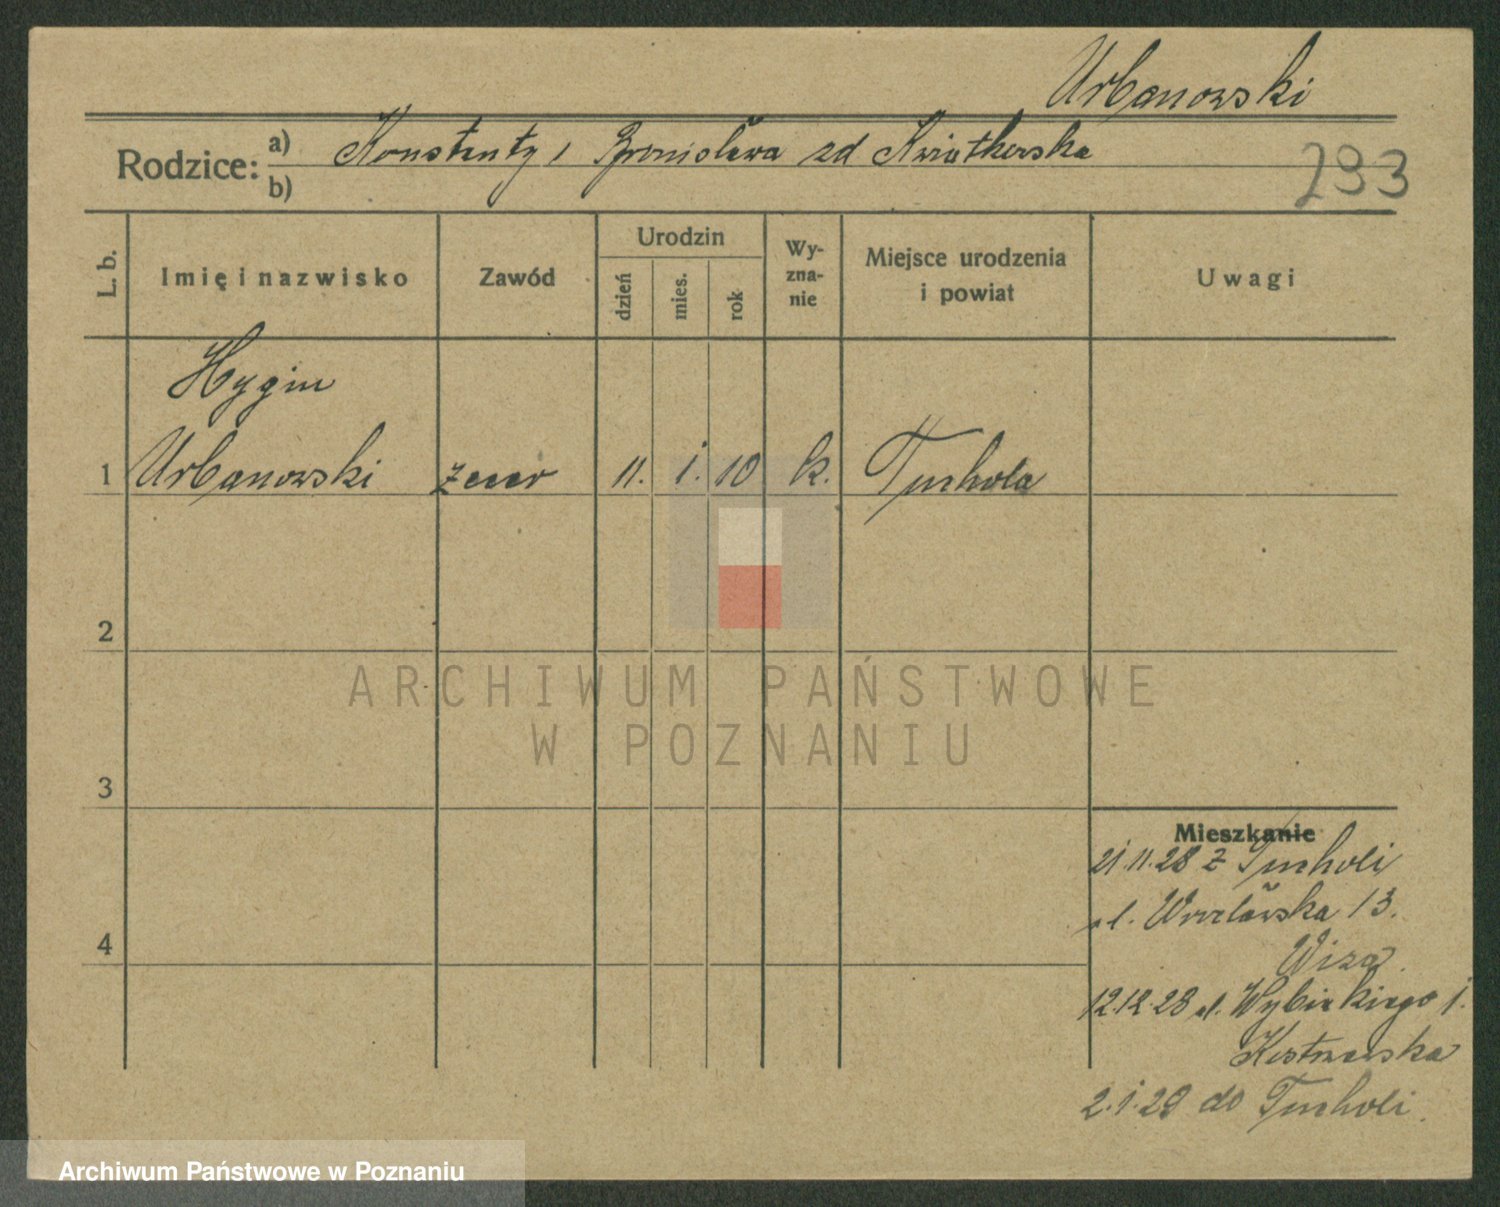 Urbanowski
Rodzice: a) Konstanty i Bronisława zd Kwiatkowska
b)
293
L. b. Imię i nazwisko Zawód Urodzin dzień mies. rok Wyzna-nie Miejsce urodzenia i powiat Uwagi
Hygin
1 Urbanowski zecer 11. 1. 10 k. Tuchola
2
ARCHIWUM PAŃSTWOWE
W POZNANIU
3
Mieszkanie
21.11.28 z Tucholi
ul. Wrocławska 13.
Wiza
12.12.28 ul. Wybickiego 1.
2.1.29 do Tucholi.
4
Archiwum Państwowe w Poznaniu